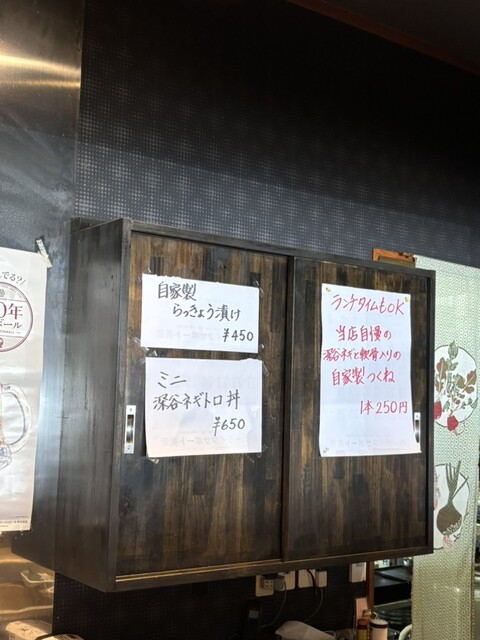 自家製
らっきょう漬け
¥450
ミニ
深谷ネギトロ丼
¥650
ランチタイムもOK
当店自慢の
深谷ネギと軟骨入りの
自家製つくね
1本250円